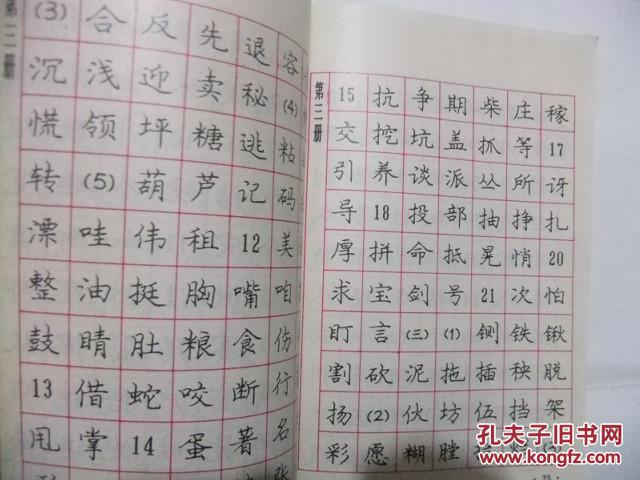 第二册
(3) 合 反 先 退 容
沉 浅 迎 卖 秘 (4)
慌 领 坪 糖 逃 粘
转 (5) 葫 芦 记 码
漂 哇 伟 租 12 美
整 油 挺 胸 嘴 咱
鼓 晴 肚 粮 食 伤
13 借 蛇 咬 断 行
甩 掌 14 蛋 著 名
张
第三册
15 抗 争 期 柴 庄 稼
交 挖 坑 盖 抓 等 17
引 养 谈 派 丛 所 讶
导 18 投 部 抽 挣 扎
厚 拼 命 抵 晃 悄 20
求 宝 剑 号 21 次 怕
盯 言 (三) (1) 铡 铁 锹
割 砍 泥 拖 插 秧 脱
扬 (2) 伙 坊 伍 挡 架
彩 愿 糊 膛
孔夫子旧书网